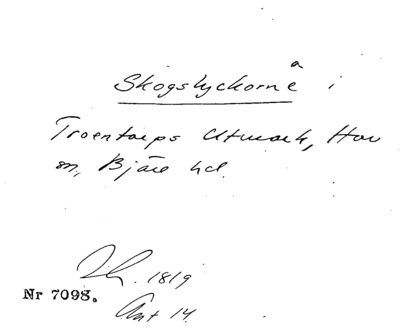 Skogslyckorna i
Troentorps Utmark, Hov
sn, Bjäre hd.
Nr 7098.
1819
Akt 14.